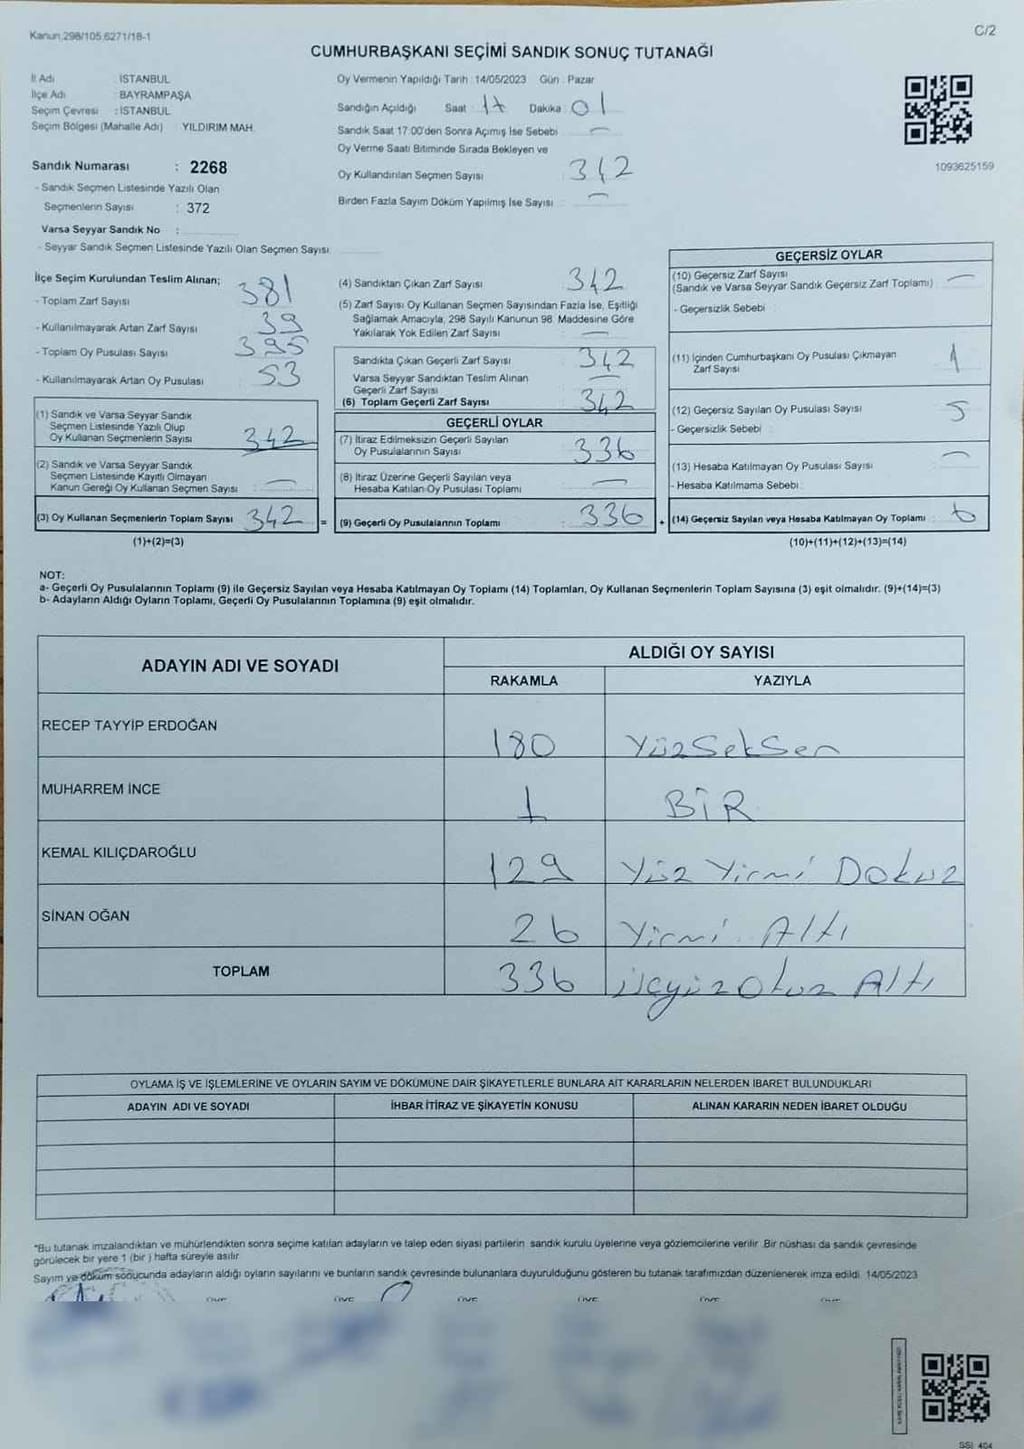 Kanun,298/105,6271/18-1
C/2
CUMHURBAŞKANI SEÇİMİ SANDIK SONUÇ TUTANAĞI
İl Adı : İSTANBUL
İlçe Adı : BAYRAMPAŞA
Seçim Çevresi : İSTANBUL
Seçim Bölgesi (Mahalle Adı) YILDIRIM MAH.
Oy Vermenin Yapıldığı Tarih : 14/05/2023 Gün : Pazar
Sandığın Açıldığı Saat 17 Dakika 01
Sandık Saat 17:00'den Sonra Açımış İse Sebebi —
Oy Verme Saati Bitiminde Sırada Bekleyen ve
Oy Kullandırılan Seçmen Sayısı 342
Birden Fazla Sayım Döküm Yapılmış İse Sayısı : —
1093625159
Sandık Numarası : 2268
- Sandık Seçmen Listesinde Yazılı Olan
Seçmenlerin Sayısı : 372
Varsa Seyyar Sandık No :
- Seyyar Sandık Seçmen Listesinde Yazılı Olan Seçmen Sayısı
İlçe Seçim Kurulundan Teslim Alınan;
- Toplam Zarf Sayısı 381
- Kullanılmayarak Artan Zarf Sayısı 39
- Toplam Oy Pusulası Sayısı 395
- Kullanılmayarak Artan Oy Pusulası 53
(1) Sandık ve Varsa Seyyar Sandık
Seçmen Listesinde Yazılı Olup
Oy Kullanan Seçmenlerin Sayısı 342
(2) Sandık ve Varsa Seyyar Sandık
Seçmen Listesinde Kayıtlı Olmayan
Kanun Gereği Oy Kullanan Seçmen Sayısı —
(3) Oy Kullanan Seçmenlerin Toplam Sayısı 342 =
(1)+(2)=(3)
(4) Sandıktan Çıkan Zarf Sayısı 342
(5) Zarf Sayısı Oy Kullanan Seçmen Sayısından Fazla İse, Eşitliği
Sağlamak Amacıyla, 298 Sayılı Kanunun 98. Maddesine Göre
Yakılarak Yok Edilen Zarf Sayısı —
Sandıkta Çıkan Geçerli Zarf Sayısı 342
Varsa Seyyar Sandıktan Teslim Alınan
Geçerli Zarf Sayısı —
(6) Toplam Geçerli Zarf Sayısı 342
GEÇERLİ OYLAR
(7) İtiraz Edilmeksizin Geçerli Sayılan
Oy Pusulalarının Sayısı 336
(8) İtiraz Üzerine Geçerli Sayılan veya
Hesaba Katılan Oy Pusulası Toplamı —
(9) Geçerli Oy Pusulalarının Toplamı : 336 +
GEÇERSİZ OYLAR
(10) Geçersiz Zarf Sayısı
(Sandık ve Varsa Seyyar Sandık Geçersiz Zarf Toplamı) —
- Geçersizlik Sebebi
(11) İçinden Cumhurbaşkanı Oy Pusulası Çıkmayan
Zarf Sayısı 1
(12) Geçersiz Sayılan Oy Pusulası Sayısı 5
- Geçersizlik Sebebi :
(13) Hesaba Katılmayan Oy Pusulası Sayısı —
- Hesaba Katılmama Sebebi :
(14) Geçersiz Sayılan veya Hesaba Katılmayan Oy Toplamı : 6
(10)+(11)+(12)+(13)=(14)
NOT:
a- Geçerli Oy Pusulalarının Toplamı (9) ile Geçersiz Sayılan veya Hesaba Katılmayan Oy Toplamı (14) Toplamları, Oy Kullanan Seçmenlerin Toplam Sayısına (3) eşit olmalıdır. (9)+(14)=(3)
b- Adayların Aldığı Oyların Toplamı, Geçerli Oy Pusulalarının Toplamına (9) eşit olmalıdır.
ADAYIN ADI VE SOYADI
ALDIĞI OY SAYISI
RAKAMLA YAZIYLA
RECEP TAYYİP ERDOĞAN 180 YüzSekSen
MUHARREM İNCE 1 BİR
KEMAL KILIÇDAROĞLU 129 Yüz Yirmi Dokuz
SİNAN OĞAN 26 Yirmi Altı
TOPLAM 336 üçyüz Otuz Altı
OYLAMA İŞ VE İŞLEMLERİNE VE OYLARIN SAYIM VE DÖKÜMÜNE DAİR ŞİKAYETLERLE BUNLARA AİT KARARLARIN NELERDEN İBARET BULUNDUKLARI
ADAYIN ADI VE SOYADI İHBAR İTİRAZ VE ŞİKAYETİN KONUSU ALINAN KARARIN NEDEN İBARET OLDUĞU
*Bu tutanak imzalandıktan ve mühürlendikten sonra seçime katılan adayların ve talep eden siyasi partilerin sandık kurulu üyelerine veya gözlemcilerine verilir. Bir nüshası da sandık çevresinde
görülecek bir yere 1 (bir ) hafta süreyle asılır.
Sayım ve döküm sonucunda adayların aldığı oyların sayılarını ve bunların sandık çevresinde bulunanlara duyurulduğunu gösteren bu tutanak tarafımızdan düzenlenerek imza edildi. 14/05/2023
SSI: 404